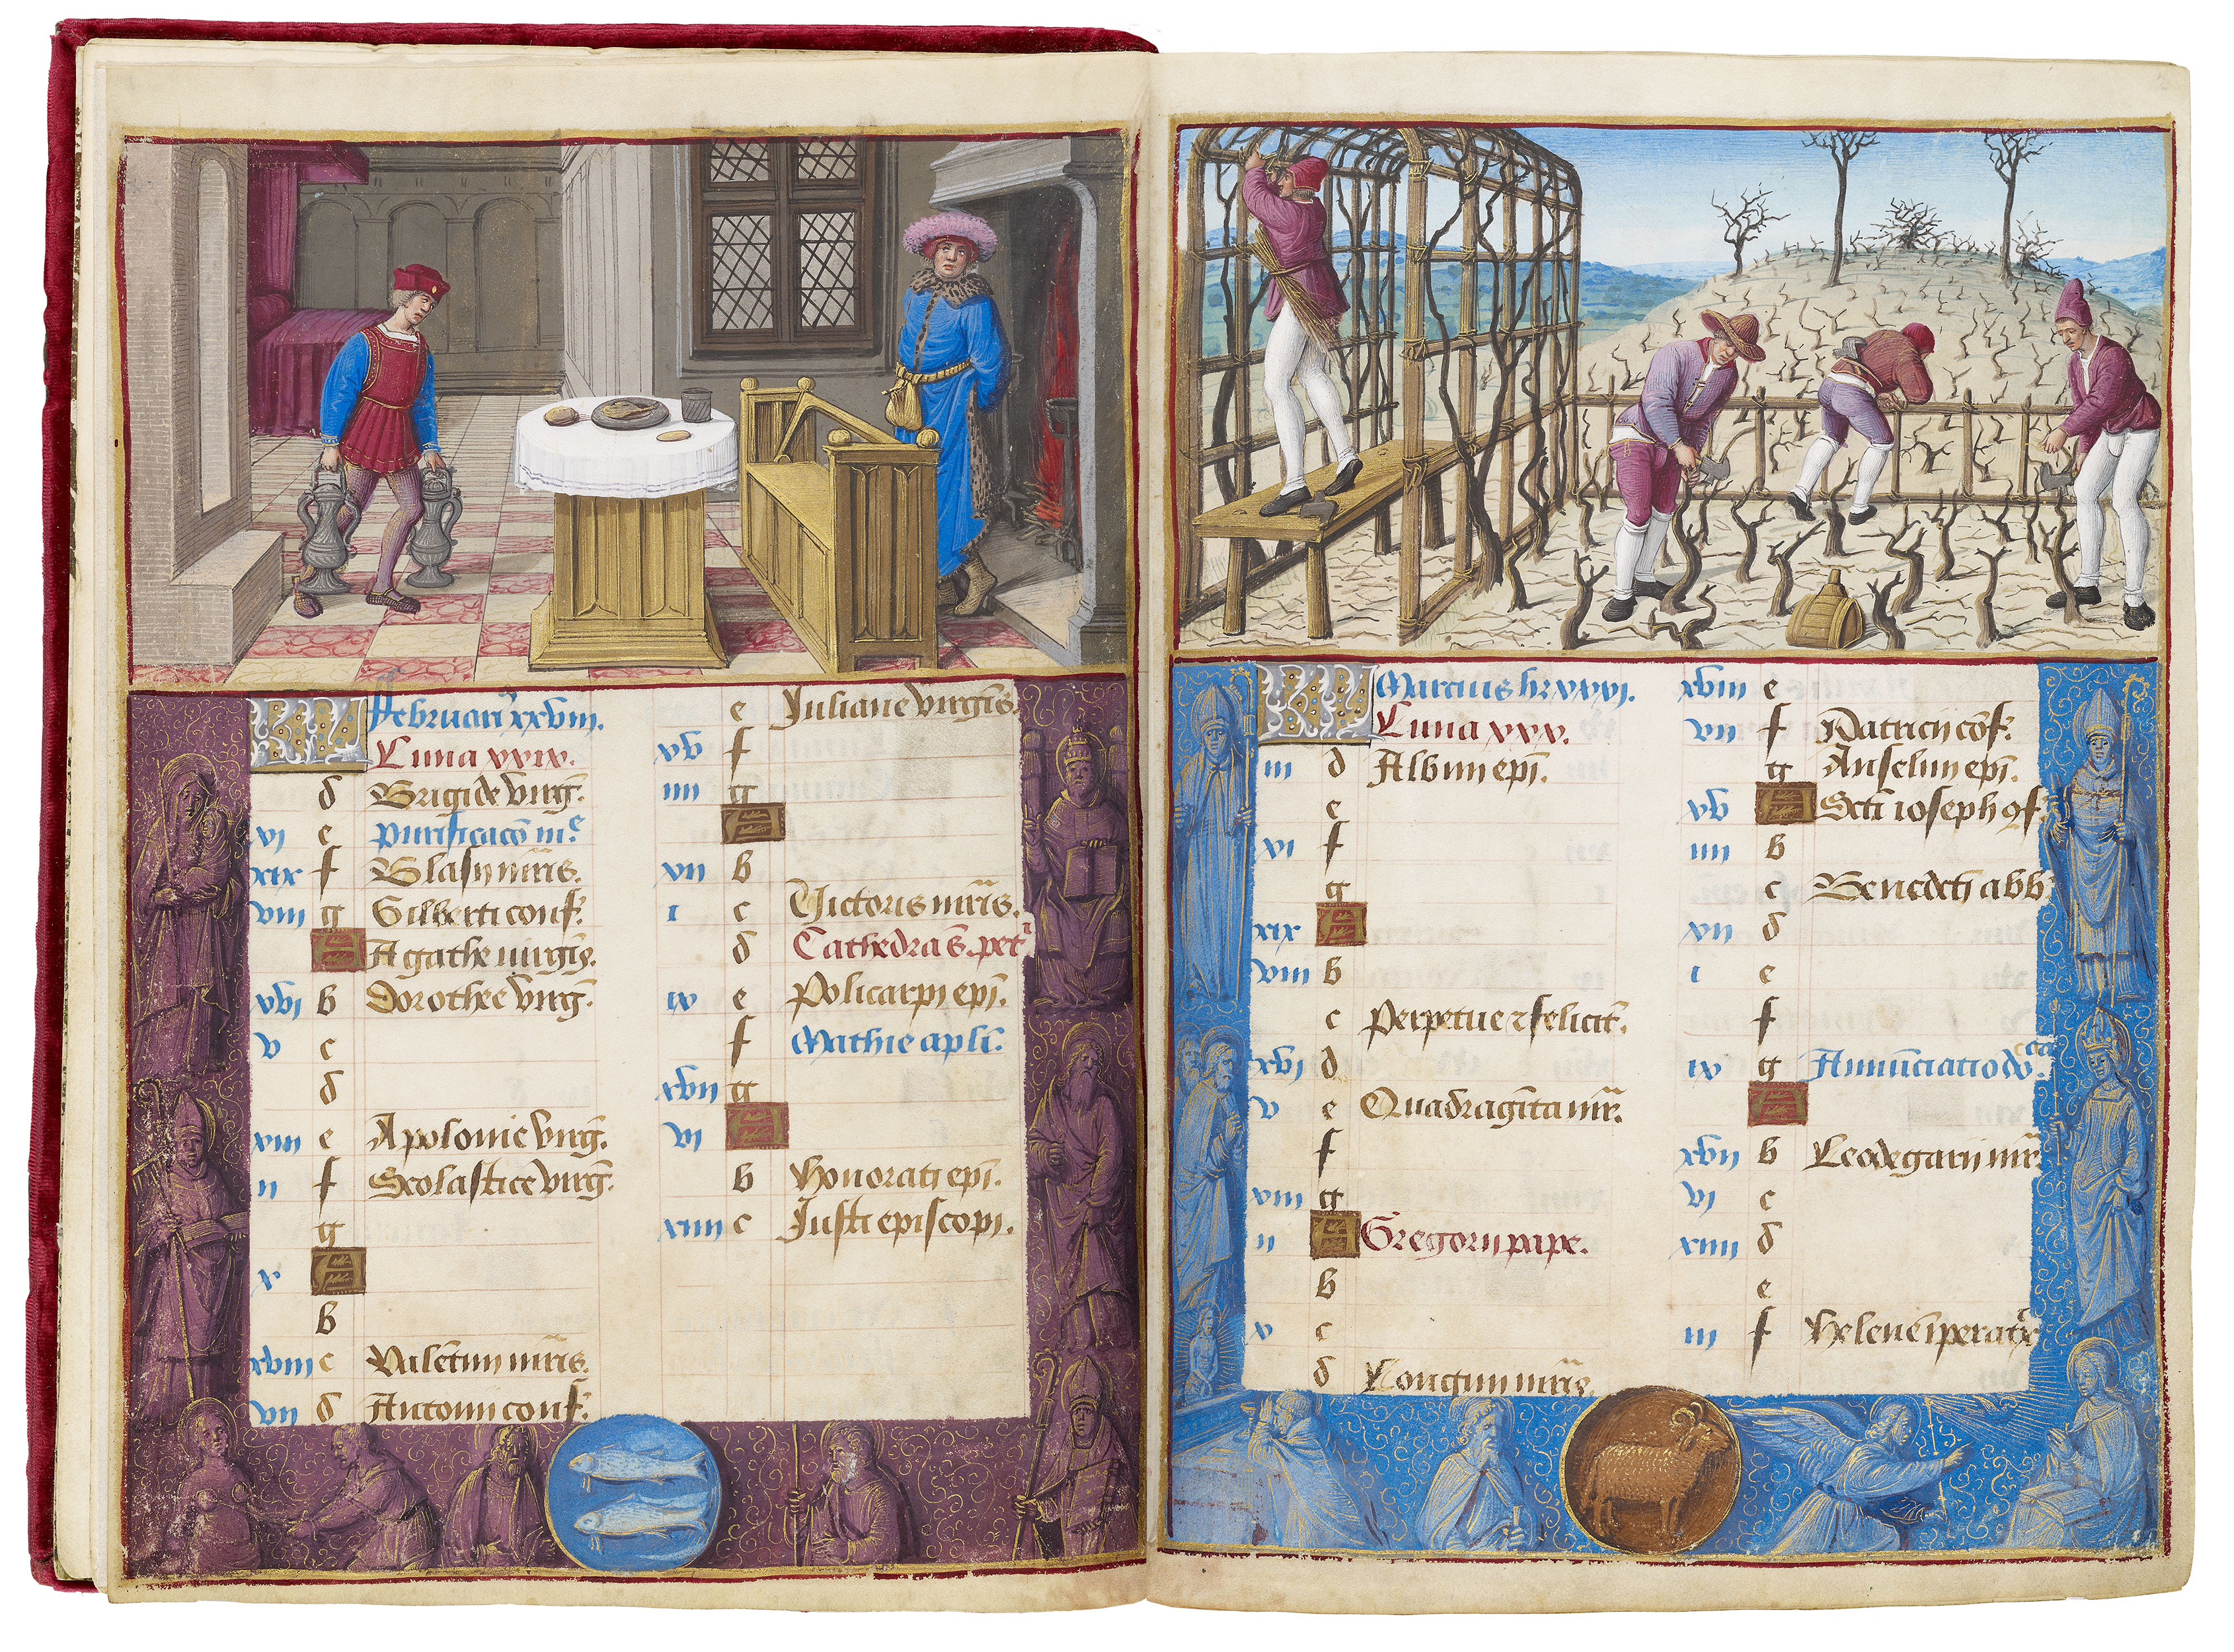 KL Februari9 xxviii.
Luna xxix.
d Brigide virg̅.
vi e purificac̅o̅ m.e
xix f Blasii m̅ris.
viii g Gilberti conf.
A Agathe virgi9.
xvi b Dorothee virg̅.
v c
d
xiii e Apolonie virg̅.
ii f Scolastice virg̅.
g
x A
b
xviii c Vale̅tini m̅ris.
vii d Antonii conf.
e Juliane virgi̅s.
xv f
iiii g
A
xii b
i c Victoris m̅ris.
d Cathedra s. petri
ix e Policarpi ep̅i.
f Mathie apl̅i.
xvii g
vi A
b Honorati ep̅i.
xiiii c Justi episcopi.
KL Marcius h̅z xxxi.
Luna xxx.
iii d Albini ep̅i.
e
xi f
g
xix A
viii b
c Perpetue ⁊ felicit̅.
xvi d
v e Quadragi̅ta mr̅.
f
xiii g
ii A Gregorii pape.
b
x c
d Longini m̅ris.
xviii e
vii f Patricii co̅f.
g Anselmi ep̅i.
xv A Sc̅ti ioseph 9f.
iiii b
c Benedicti abb̅
xii d
i e
f
ix g Annu̅ciatio do̅.
A
xvii b Leodegarii mr̅.
vi c
xiiii d
e
iii f Helene i̅perat̅.